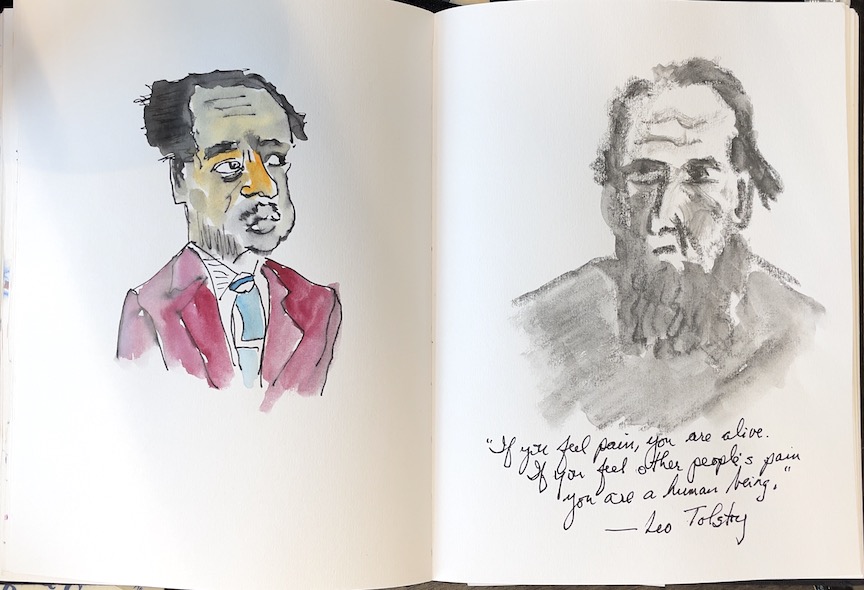 "If you feel pain, you are alive.
If you feel other people's pain
you are a human being."
— Leo Tolstoy